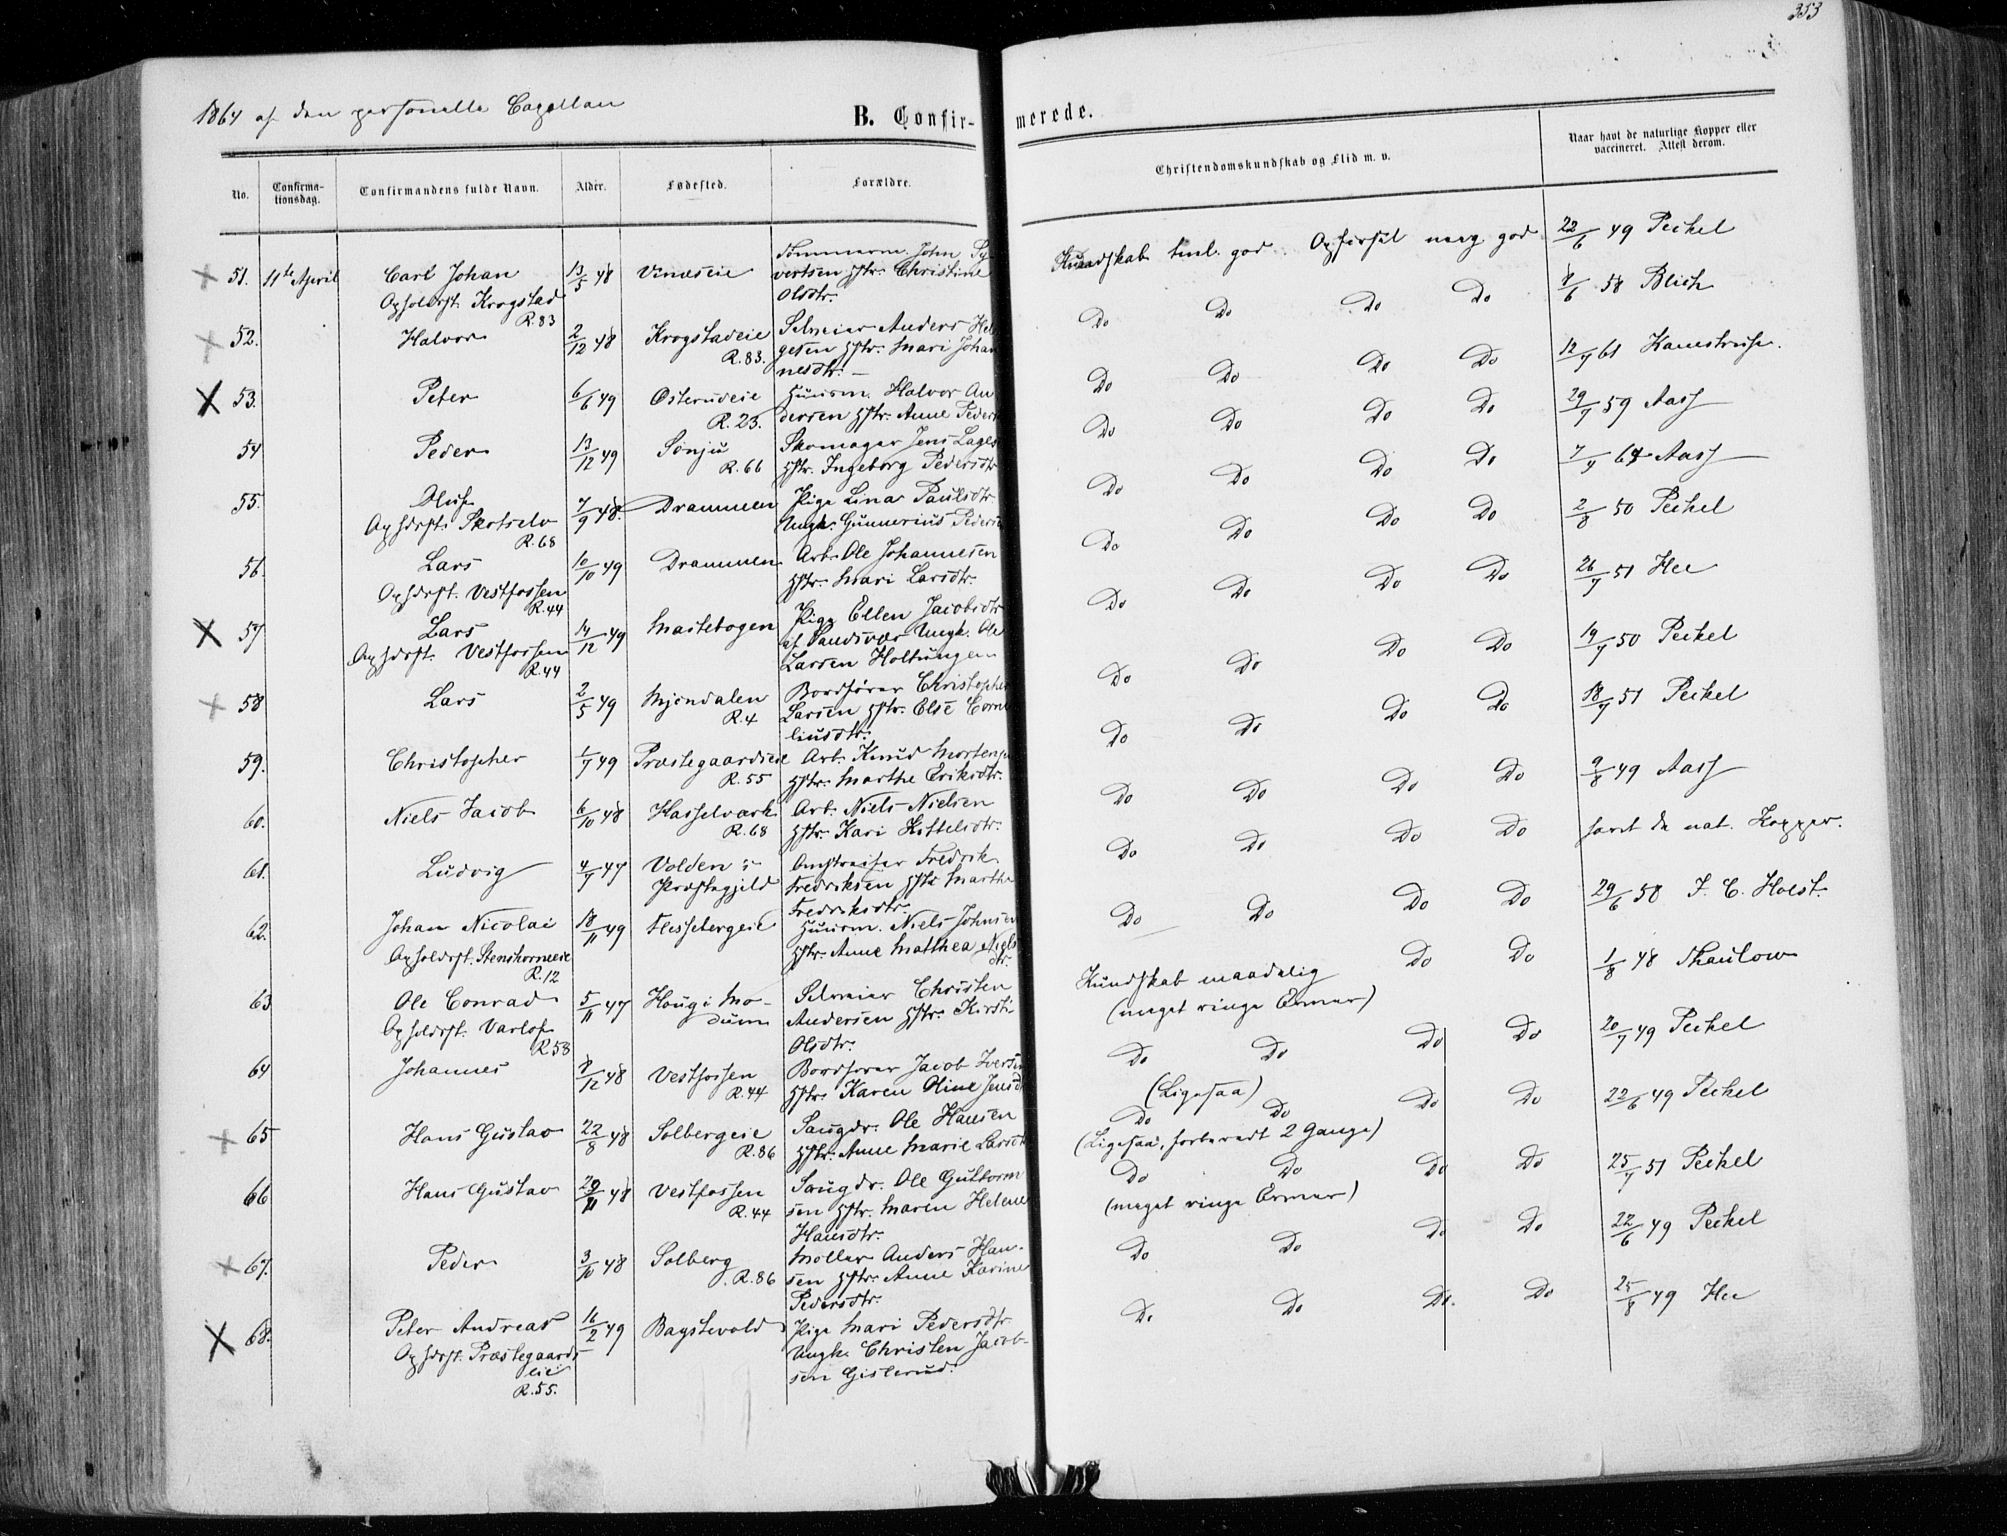 353
1864 af den personelle Capellan
B. Confir-
merede.
No.
Confirma-
tionsdag.
Confirmandens fulde Navn.
Alder.
Fødested.
Forældre.
Christendomskundskab og Flid m. v.
Naar havt de naturlige Kopper eller
vaccineret. Attest derom.
51. 11te April Carl Johan 13/5 48 Vinæseie Tømmerm. John Sy-
vertsen Hstr. Christine
Opholdsst. Krogstad Olsdtr.
R.83
Kundskab teml. god Opførsel meg. god 22/6 49 Peckel
52. Halvor 2/12 48 Krogstadeie Selveier Anders Hel
R.83. gesen Hstr. Mari Johan
nesdtr.
Do Do Do Do 7/6 58 Blich
53. Peter 6/6 49 Østerudeie Huusm. Halvor An
R.23. dersen Hstr. Anne Peders
Do Do Do Do 12/7 61
54 Peder 13/12 49 Sønju Skomager Jens
R.66 Hstr. Ingeborg Pedersdtr
Do Do Do Do 29/7 59 Aass
55. Oluf 7/9 48. Drammen Pige Lina Paulsdtr
Ophdsst. Skotselv Ungk. Gunnerius Peders
R.68
Do Do Do Do 7/7 64 Aass
56. Lars 10/10 49 Drammen Arb. Ole Johannesen
Ophdsst. Vestfossen Hstr. Mari Larsdtr.
R.44
Do Do Do Do 2/8 50 Peckel
57 Lars 14/12 49 Mastebogen Pige Ellen Jacobsdtr
Ophdsst. Vestfossen af Sandsvær Ungk. Ole
R.44 Larsen Holtungen
Do Do Do Do 26/7 51 Hee
58 Lars 2/5 49 Mjøndalen Bordfører Christopher
R.4 Larsen Hstr. Else Corne
liusdtr.
Do Do Do Do 19/7 50 Peckel
59. Christopher 1/7 49 Præstegaardseie Arb. Knud Mortensen
R.55 Hstr. Marthe Eriksdtr.
Do Do Do Do 18/7 51 Peckel
60. Niels Jacob 6/10 48 Hasselværk Arb. Niels Nielsen
R.68 Hstr. Kari Kittelsdtr.
Do Do Do Do 9/8 49 Aass
61. Ludvig 4/7 47 Volden i Opstreifer Fredrik
Præstegjeld Fredriksen Hstr Marthe
Fredriksdtr.
Do Do Do Do havt de nat. Kopper.
62. Johan Nicolai 18/11 49 Flessebergeie Huusm. Niels Johnsen
Opholdsst. Stenshorneeie Hstr. Anne Matthea Niels
R.12 dtr.
Do Do Do Do 29/6 50 J. C. Holst.
63 Ole Conrad 5/11 47 Houg i Mo- Selveier Christen
dum Andersen Hstr. Kirsti
Opholdsst. Varlof Olsdtr.
R 58
Kundskab maadelig Do Do 1/8 48 Thaulow
(meget ringe Evner)
64 Johannes 8/12 48 Vestfossen Bordfører Jacob Iversen
R.44 Hstr. Karen Oline Jensdt
Do Do Do Do 20/7 49 Peckel
(Ligesaa)
65 Hans Gustav 22/8 48 Solbergeie Saugdr. Ole Hansen
R.86 Hstr. Anne Marie Larsdt
Do Do Do Do 22/6 49 Peckel
(Ligesaa, forberedt 2 Gange)
66 Hans Gustav 29/11 48 Vestfossen Saugdr. Ole Guttorm
R.44 sen Hstr. Maren Helene
Hansdtr.
Do Do Do Do 25/7 51 Peckel
(meget ringe Evner)
67. Peder 3/10 48 Solberg Møller Anders Han-
R.86 sen Hstr. Anne Karine
Pedersdtr.
Do Do Do Do 22/6 49 Peckel
68. Peter Andreas 16/2 49 Bagstevold Pige Mari Pedersdtr
Ophdsst. Præstegaards Ungk. Christen Jacob-
eie sen Gislerud.
R.55.
Do Do Do. Do 25/8 49 Hee